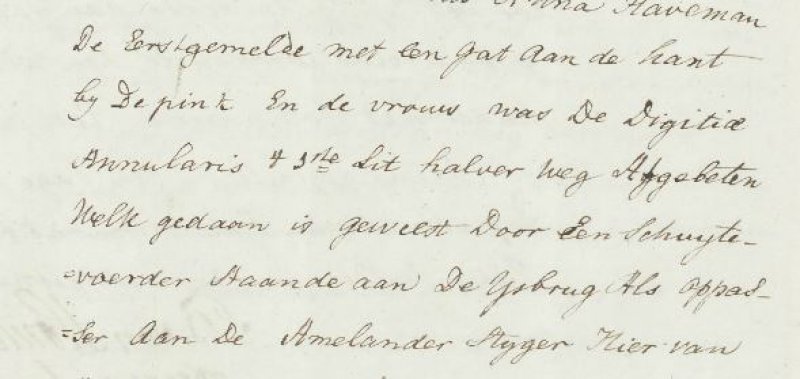 Anna Haveman
De Eerstgemelde met een gat Aan de hant
by De pink En de vrouw was De Digitiæ
Annularis 't 3de Lit halver weg Afgebeten
Welk gedaan is geweest Door Een Schuyte-
=voerder Staande aan De Ysbrug Als oppas-
=ser Aan De Amelander Styger Hier van